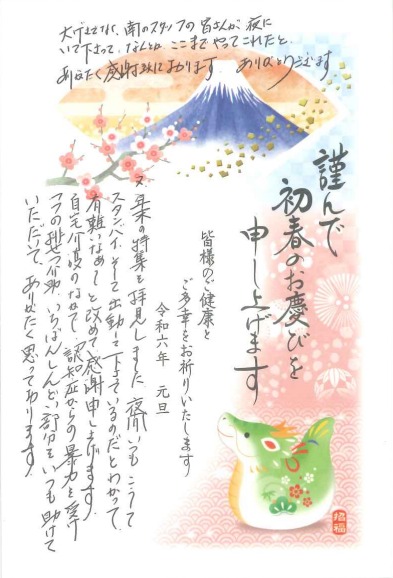 大げさでなく、南のスタッフの皆さんが夜に
いて下さって、なんとか ここまで やってこれたと、
ありがたく感謝致しております。 ありがとうございます
謹んで
初春のお慶びを
申し上げます
皆様のご健康と
ご多幸をお祈りいたします
令和六年 元旦
又、年末の特集を拝見しました。夜間いつもこうして
スタンバイ、そして出動して下さっているのだとわかって、
有難いなあ〜と改めて感謝申し上げます。
自宅介護のなかで、認知症からの暴力を受け
つつの排泄介助、いちばんしんどい部分をいつも助けて
いただいて、ありがたく思っております。
招福